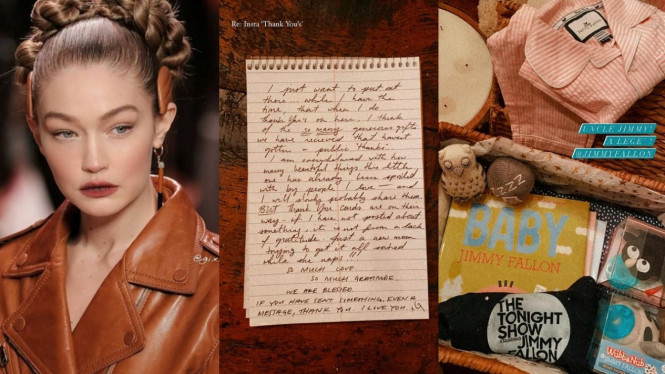 Re: Insta 'Thank You's'
I just want to put out
there - while I have the
time, that when I do
thank you's on here. I think
of the so many generous gifts
we have recieved that havent
gotten a public 'thanks'.
I am overwhelmed with how
many beautiful things this little
one has already been spoiled
with by people I love — and
I will slowly probably share them.
BUT thank you cards are on their
way - if I have not posted about
something, it is not from a lack
of gratitude. Just a new mom
trying to get it all sorted
while she naps!!!
SO MUCH LOVE.
SO MUCH GRATITUDE.
WE ARE BLESSED.
IF YOU HAVE SENT SOMETHING, EVEN A
MESSAGE, THANK YOU. I LOVE YOU. G
UNCLE JIMMY!
A LEGE
@JIMMYFALLON
ZZZ
BABY
JIMMY FALLON
THE
TONIGHT
SHOW
JIMMY
FALLON
WubbaNub